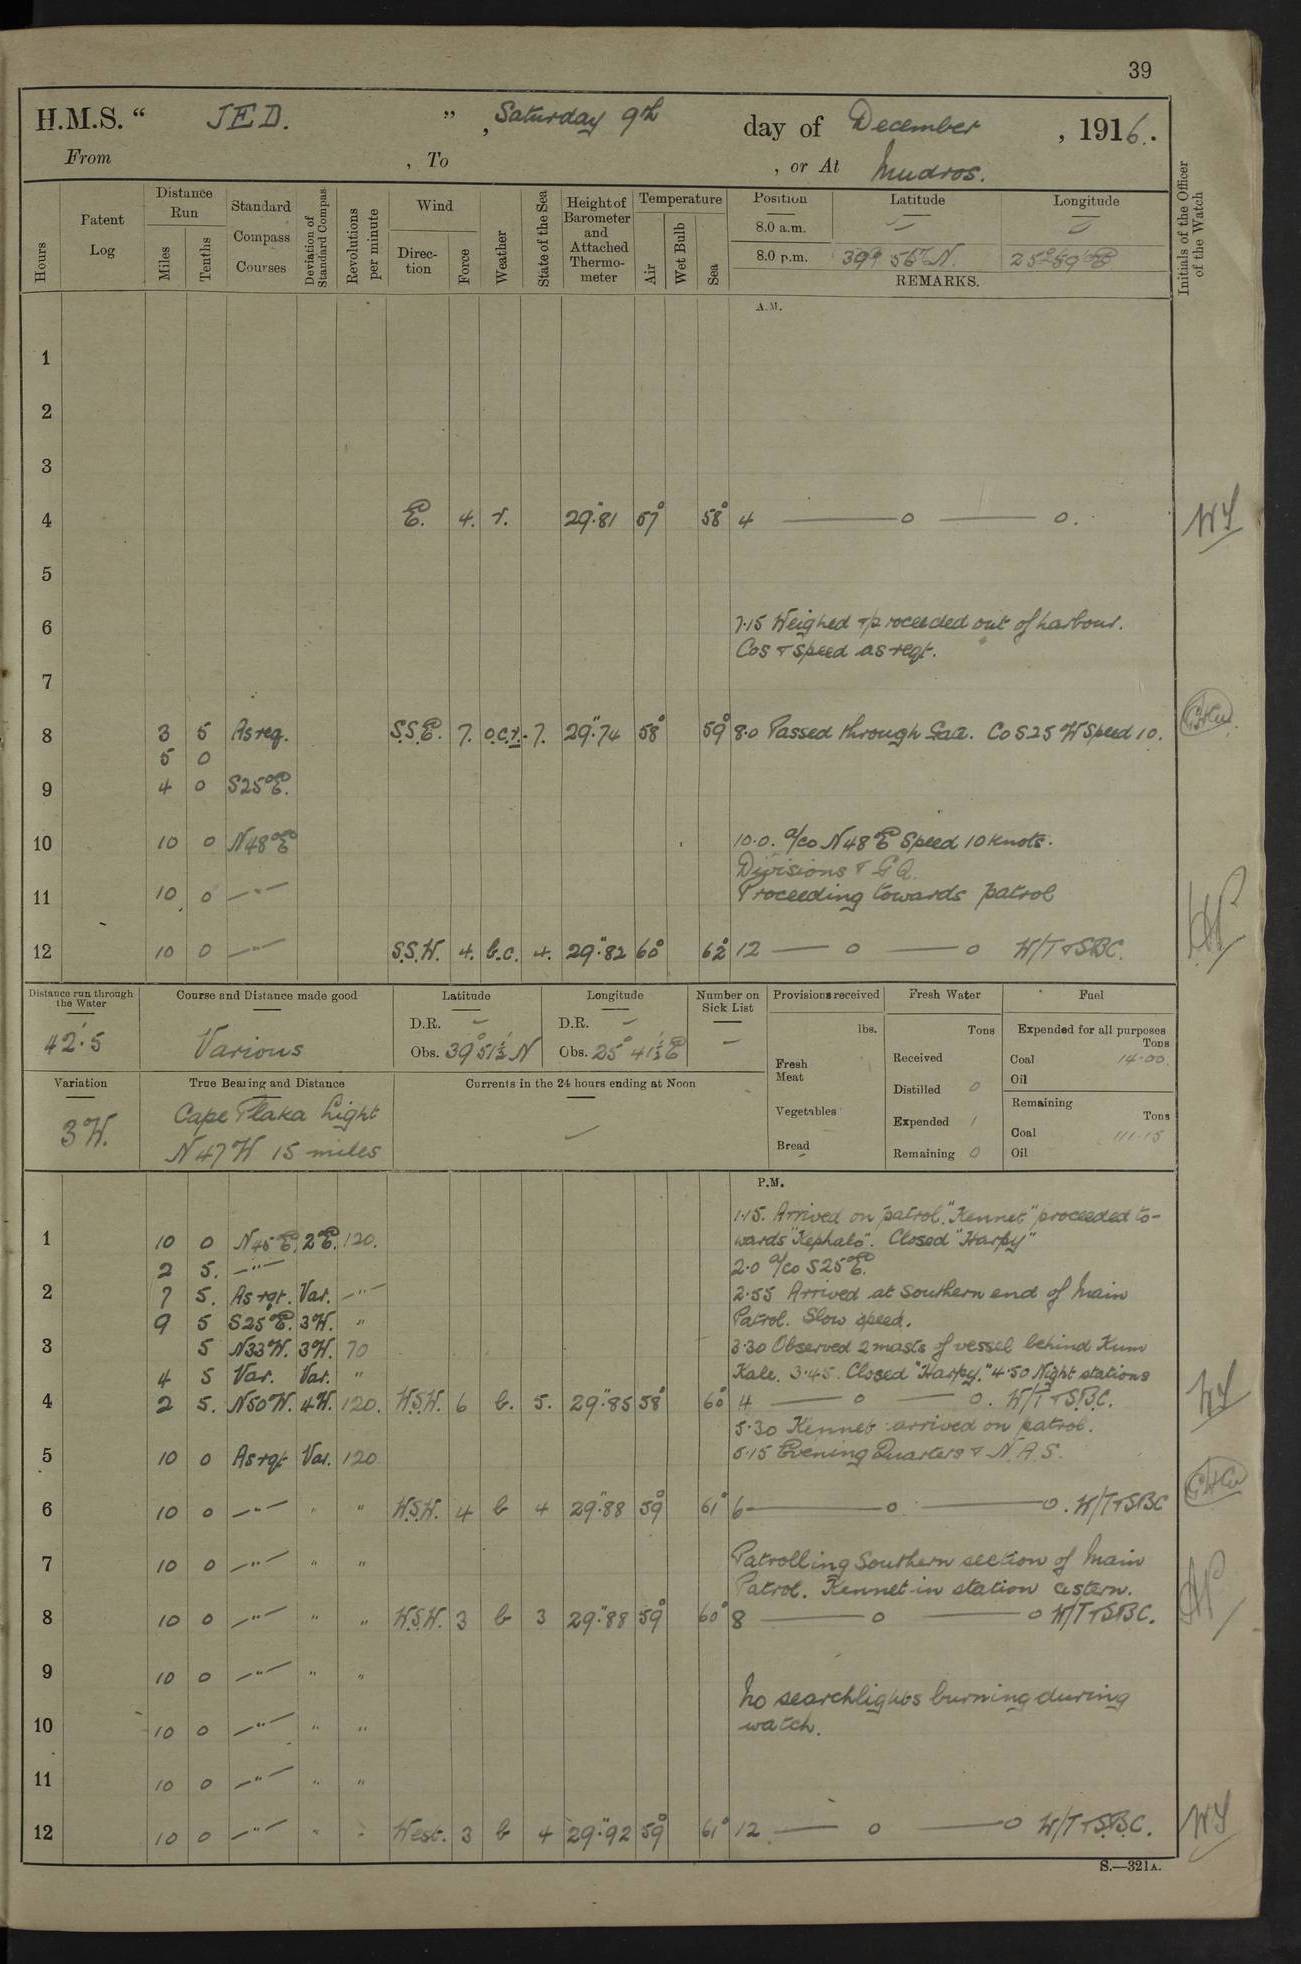 39
H.M.S. " JED. " , Saturday 9th day of December , 1916.
From , To , or At Mudros.
Hours
Patent Log
Distance Run
Miles
Tenths
Standard Compass Courses
Deviation of Standard Compas
Revolutions per minute
Wind
Direc-tion
Force
Weather
State of the Sea
Height of Barometer and Attached Thermo-meter
Temperature
Air
Wet Bulb
Sea
Position Latitude Longitude
8.0 a.m. — —
8.0 p.m. 39° 56' N. 25° 59' E
REMARKS.
Initials of the Officer of the Watch
A.M.
1
2
3
4 E. 4. r. 29".81 57° 58° 4 — o — o.
5
6 7.15 Weighed & proceeded out of harbour.
Cos & speed as reqt.
7
8 3 5 As req. S.S.E. 7. o.c.r. 7. 29".74 58° 59° 8.0 Passed through Gate. Co S25 W Speed 10.
5 0
9 4 0 S25°E.
10 10 0 N48°E 10.0. a/co N48°E Speed 10 knots.
Divisions & G.Q.
11 10 0 —"— Proceeding towards patrol
12 10 0 —"— S.S.W. 4. b.c. 4. 29".82 60° 62° 12 — o — o W/T & SBC.
Distance run through the Water
42'.5
Course and Distance made good
Various
Latitude
D.R. —
Obs. 39° 51½' N
Longitude
D.R. —
Obs. 25° 41½' E
Number on Sick List
—
Provisions received
lbs.
Fresh Meat
Vegetables
Bread
Fresh Water
Tons
Received
Distilled 0
Expended 1
Remaining 0
Fuel
Expended for all purposes
Tons
Coal 14.00.
Oil
Remaining
Tons
Coal 111.15
Oil
Variation
3 W.
True Bearing and Distance
Cape Plaka Light
N 47 W 15 miles
Currents in the 24 hours ending at Noon
—
P.M.
1.15. Arrived on patrol. "Kennet" proceeded to-
1 10 0 N45°E. 2°E. 120. wards "Kephalo". Closed "Harpy"
2 5. —"— 2.0 a/co S25°E.
2 7 5. As rqt. Var. —"— 2.55 Arrived at Southern end of Main
9 5 S25°E. 3W. " Patrol. Slow speed.
3 5 N33W. 3W. 70 3.30 Observed 2 masts of vessel behind Kum
4 5 Var. Var. " Kale. 3.45. Closed "Harpy." 4.50 Night stations
4 2 5. N50W. 4W. 120. W.S.W. 6 b. 5. 29".85 58° 60° 4 — o — o. W/T & S.B.C.
5.30 Kennet arrived on patrol.
5 10 0 As rqt Var. 120 5.15 Evening Quarters & N.A.S.
6 10 0 —"— " " W.S.W. 4 b 4 29".88 59° 61° 6 — o — o. W/T & SBC
7 10 0 —"— " " Patrolling Southern section of Main
Patrol. Kennet in station astern.
8 10 0 —"— " " W.S.W. 3 b 3 29".88 59° 60° 8 — o — o W/T & SBC.
9 10 0 —"— " " No searchlights burning during
10 10 0 —"— " " watch.
11 10 0 —"— " "
12 10 0 —"— " " West. 3 b 4 29".92 59° 61° 12 — o — o W/T & S.B.C.
S.—321A.